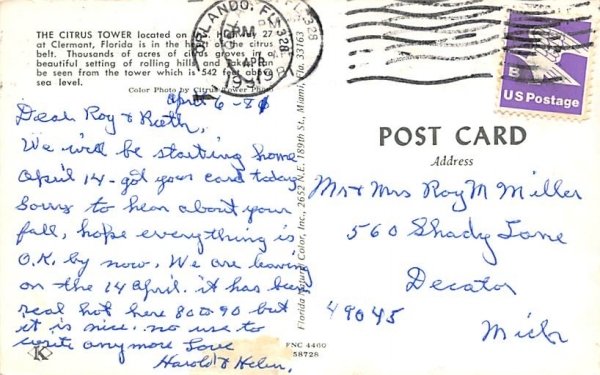 THE CITRUS TOWER located on U.S. Highway 27
at Clermont, Florida is in the heart of the citrus
belt. Thousands of acres of citrus groves in a
beautiful setting of rolling hills and lakes can
be seen from the tower which is 542 feet above
sea level.
Color Photo by Citrus Tower Photo
ORLANDO, FL 328
PM
APR
1981
B
US Postage
April 6-81
Dear Roy & Ruth,
We will be starting home
April 14 - got your card today
Sorry to hear about your
fall, hope everything is
O.K. by now. We are leaving
on the 14 April. it has been
real hot here 80 to 90 but
it is nice. no use to
write anymore Love
Harold & Helen,
K
FNC 4460
58728
Florida Natural Color, Inc., 2652 N.E. 189th St., Miami, Fla. 33163
POST CARD
Address
Mr & Mrs Roy M Miller
560 Shady Lane
Decator
49045
Mich